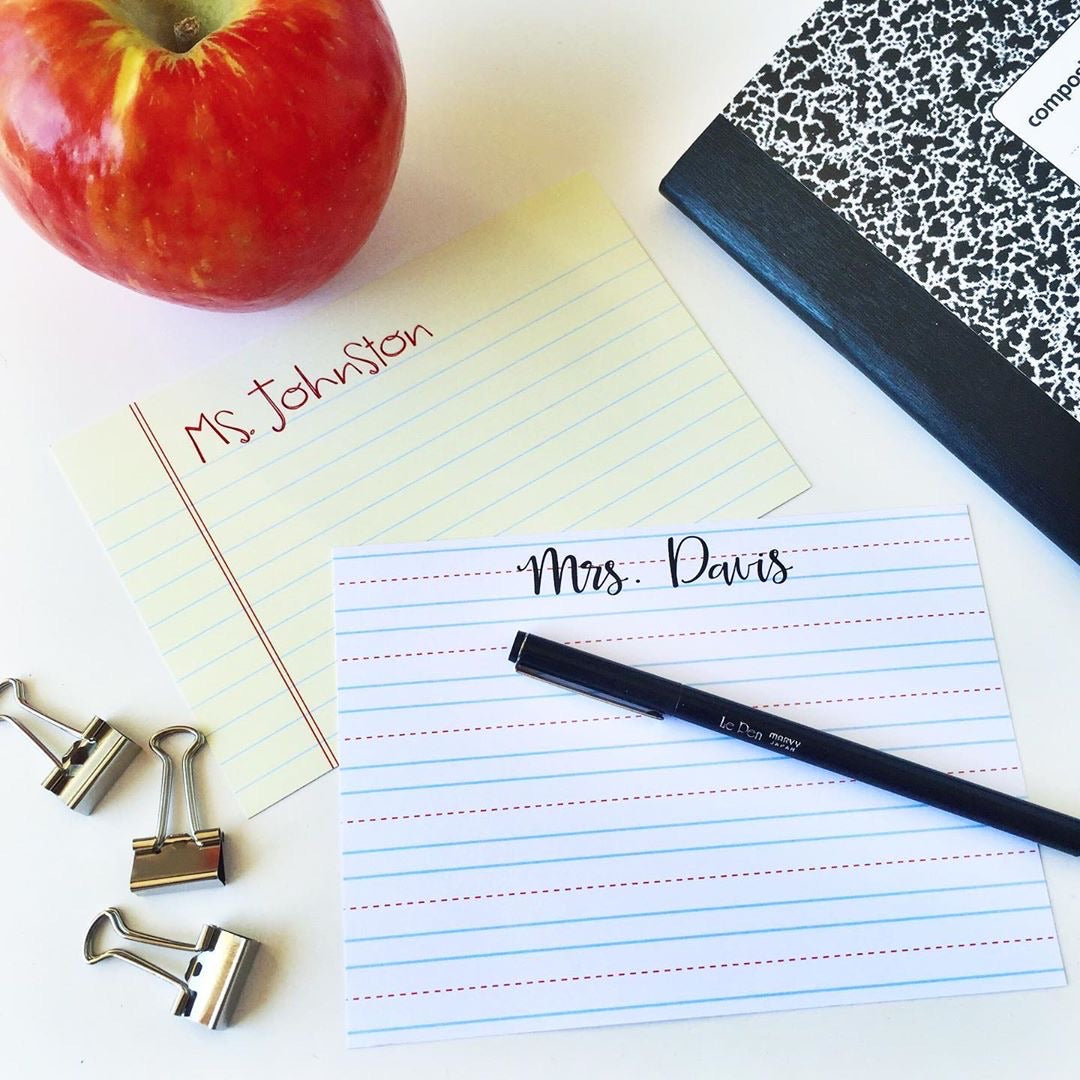 compo
Ms. Johnston
Mrs. Davis
Le Pen MARVY
JAPAN